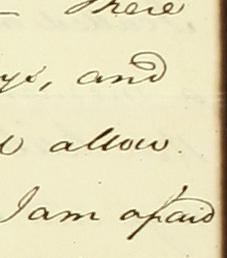 – There
ys, and
allow.
I am afraid